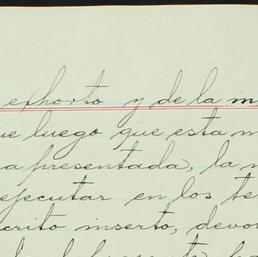 exhorto y de la m
ue luego que esta m
a presentada, la m
ejecutar en los te
crito inserto, devo